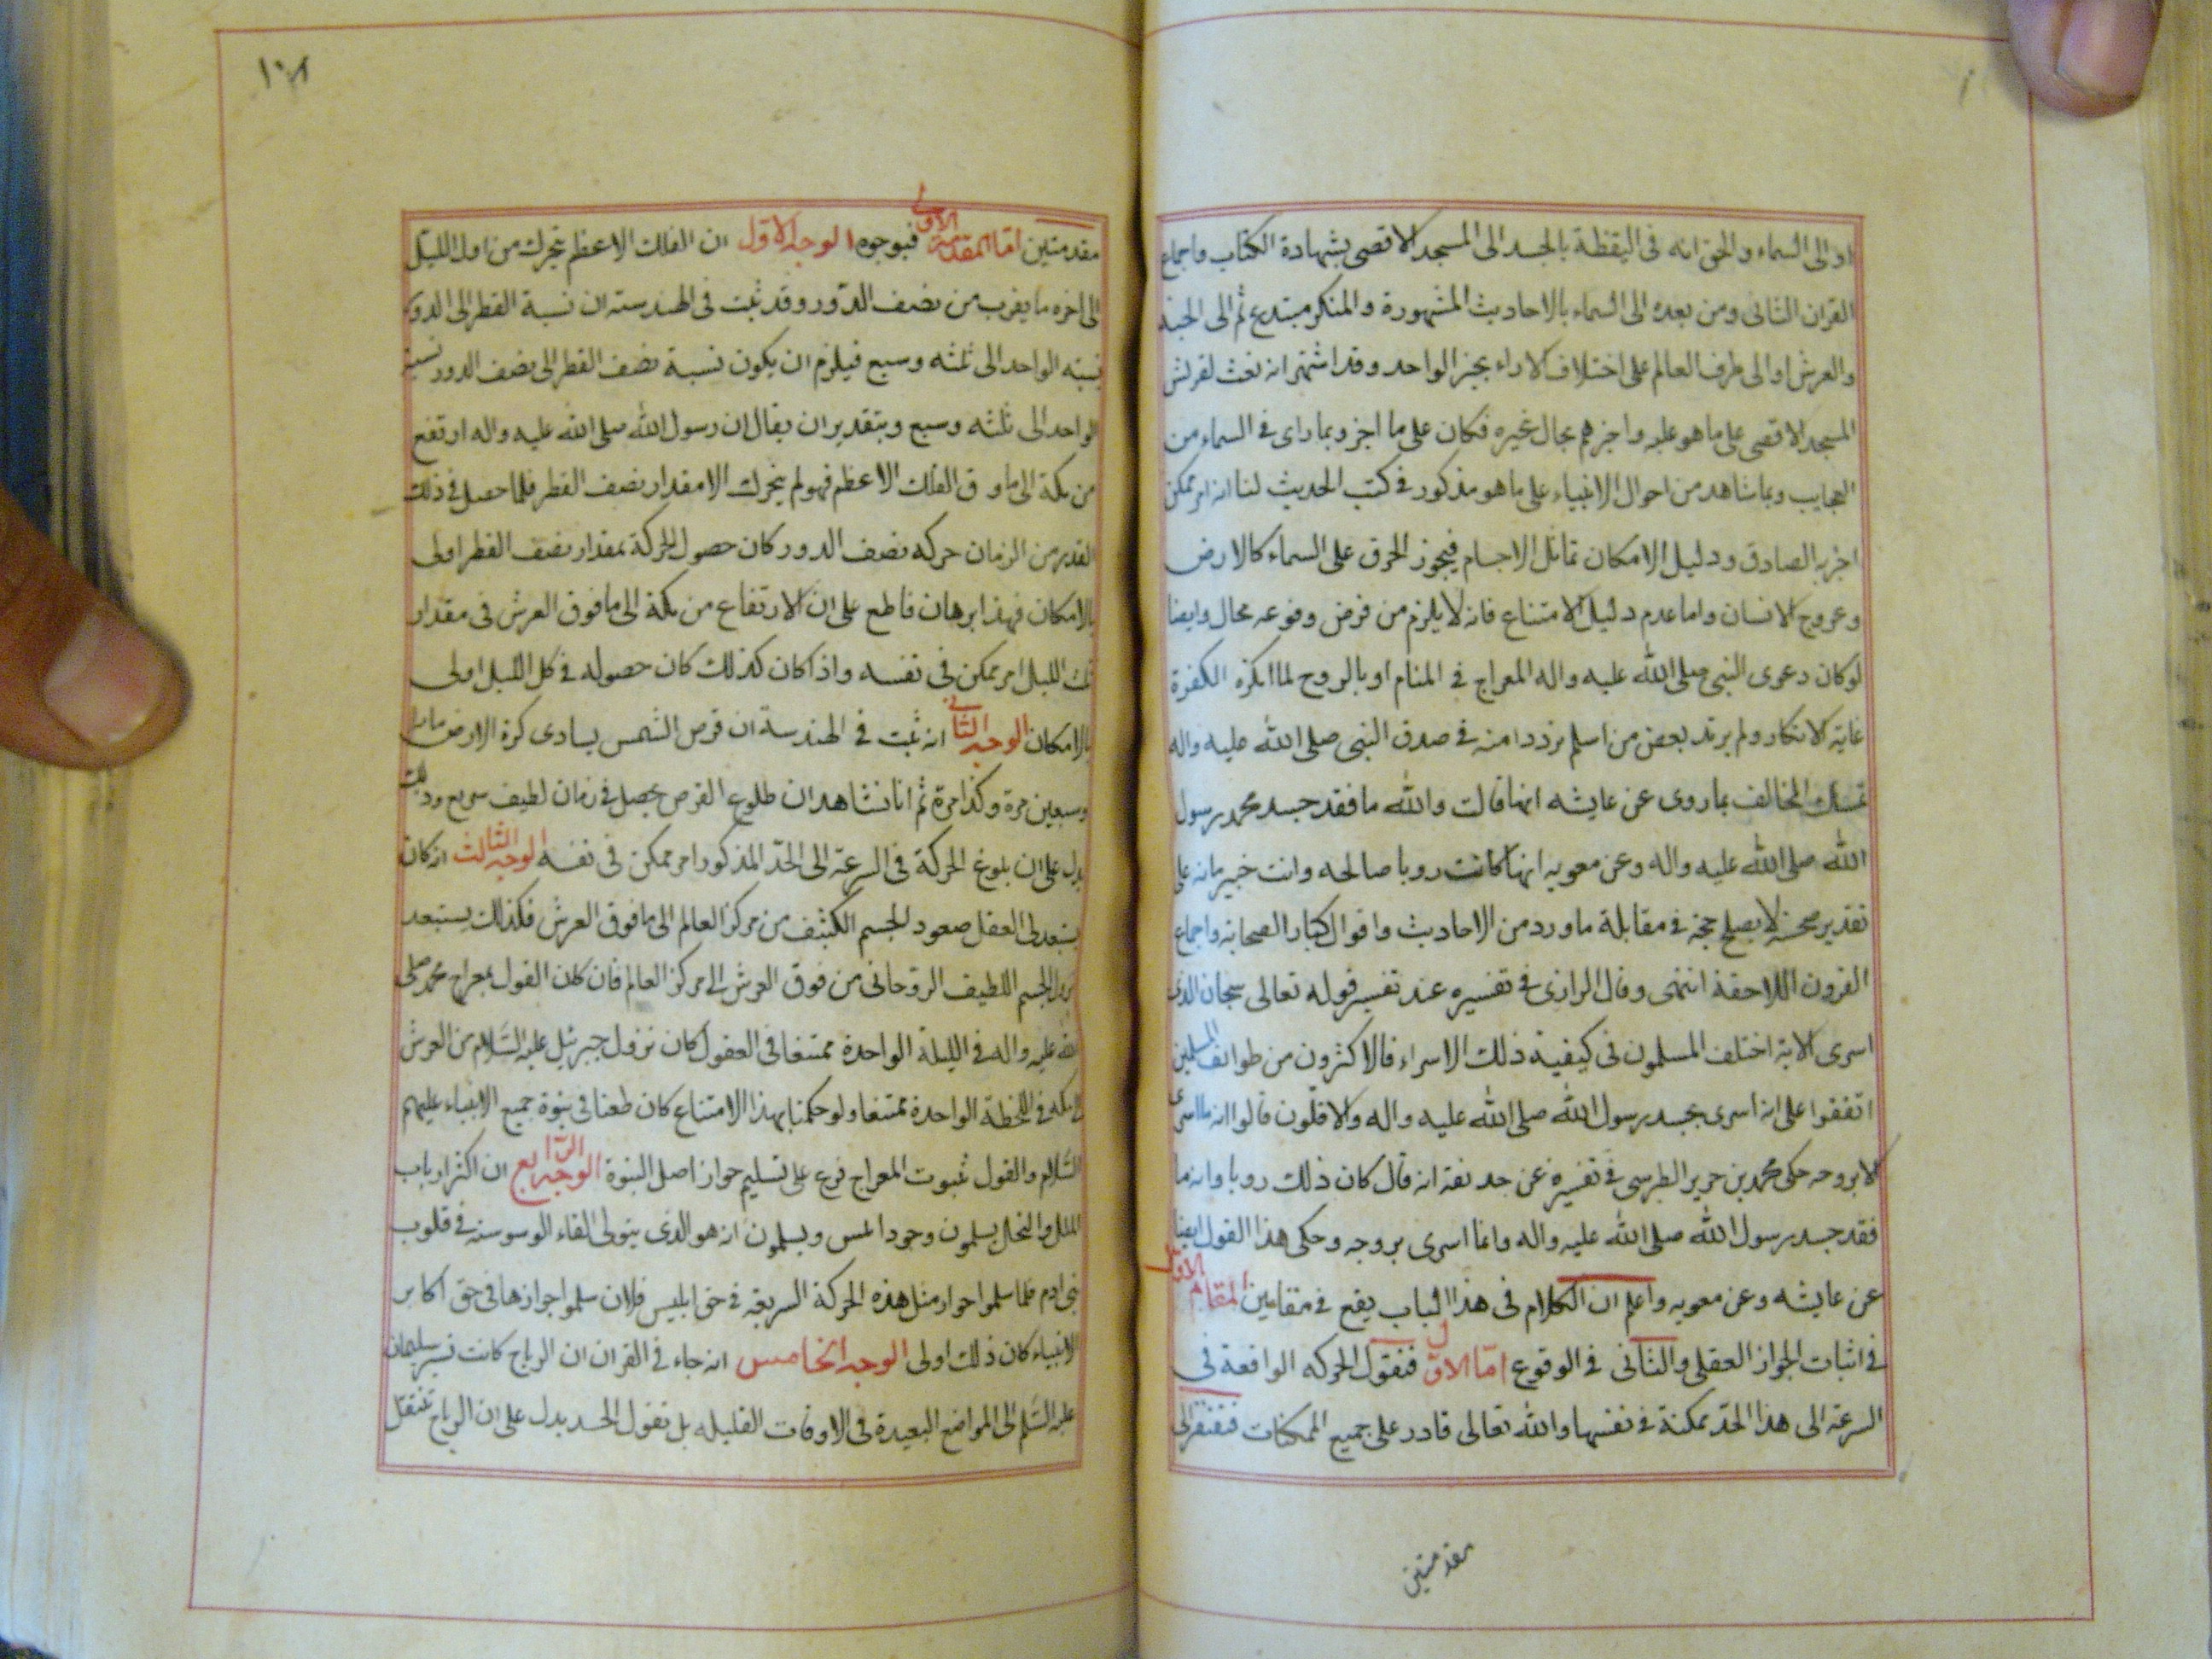 او الى السماء والحق انه فى اليقظة بالجسد الى المسجد الاقصى بشهادة الكتاب واجماع
القرن الثانى ومن بعده الى السماء بالاحاديث المشهورة والمنكر مبتدع ثم الى الجنة
والعرش او الى طرف العالم على اختلاف الاراء بخبر الواحد وقد اشتهر انه نعت لقريش
المسجد الاقصى على ما هو عليه واخبرهم بحال غيره فكان على ما اخبر وبما راى فى السماء من
العجايب وبما شاهد من احوال الانبياء على ما هو مذكور فى كتب الحديث لنا انه امر ممكن
اخبر به الصادق ودليل الامكان تماثل الاجسام فيجوز الخرق على السماء كالارض
وعروج الانسان واما عدم دليل الامتناع فانه لا يلزم من فرض وقوعه محال وايضا
لو كان دعوى النبى صلى الله عليه واله المعراج فى المنام او بالروح لما انكره الكفرة
غاية الانكار ولم يرتد بعض من اسلم ترددا منه فى صدق النبى صلى الله عليه واله
تمسك المخالف بما روى عن عايشه انها قالت والله ما فقد جسد محمد رسول
الله صلى الله عليه واله وعن معويه انها كانت رويا صالحه وانت خبير بانه على
تقدير صحته لا يصلح حجة فى مقابلة ما ورد من الاحاديث واقوال كبار الصحابة واجماع
القرون اللاحقة انتهى وقال الرازى فى تفسيره عند تفسير قوله تعالى سبحان الذى
اسرى الاية اختلف المسلمون فى كيفية ذلك الاسراء فالاكثرون من طوائف المسلمين
اتفقوا على انه اسرى بجسد رسول الله صلى الله عليه واله والاقلون قالوا انه ما اسرى
الا بروحه حكى محمد بن جرير الطبرسى فى تفسيره عن حذيفة انه قال كان ذلك رويا وانه ما
فقد جسد رسول الله صلى الله عليه واله وانما اسرى بروحه وحكى هذا القول ايضا
عن عايشه وعن معويه واعلم ان الكلام فى هذا الباب يقع فى مقامين المقام الاول
فى اثبات الجواز العقلى والثانى فى الوقوع امّا الاوّل فنقول الحركه الواقعة فى
السرعة الى هذا الحدّ ممكنة فى نفسها والله تعالى قادر على جميع الممكنات فنفتقر الى
مقدمتين
١٠٨
مقدمتين امّا المقدمة الاولى فبوجوه الوجه الاوّل ان الفلك الاعظم يتحرك من اول الليل
الى اخره ما يقرب من نصف الدّور وقد ثبت فى الهندسة ان نسبة القطر الى الدور
نسبته الواحد الى ثلثه وسبع فيلزم ان يكون نسبة نصف القطر الى نصف الدور نسبة
الواحد الى ثلثه وسبع وبتقدير ان يقال ان رسول الله صلى الله عليه واله ارتفع
من مكة الى ما وق الفلك الاعظم فهو لم يتحرك الا مقدار نصف القطر فلما حصل فى ذلك
القدر من الزمان حركه نصف الدور كان حصول الحركة بمقدار نصف القطر اولى
بالامكان فهذا برهان قاطع على ان الارتفاع من مكة الى ما فوق العرش فى مقدار
ثلث الليل امر ممكن فى نفسه واذا كان كذلك كان حصوله فى كل الليل اولى
بالامكان الوجه الثانى انه ثبت فى الهندسة ان قرص الشمس يساوى كرة الارض
وسبعين مرة وكذا مرة ثم انا نشاهد ان طلوع القرص يحصل فى زمان لطيف سريع وذلك
يدل على ان بلوغ الحركة فى السرعة الى الحدّ المذكور امر ممكن فى نفسه الوجه الثالث انه كان
يستبعد فى العقل صعود الجسم الكثيف من مركز العالم الى ما فوق العرش فكذلك يستبعد
نزول الجسم اللطيف الروحانى من فوق العرش الى مركز العالم فان كان القول بمعراج محمد صلى
الله عليه واله فى الليلة الواحدة ممتنعا فى العقول كان نزول جبرئيل عليه السّلام من العرش
الى مكه فى اللحظة الواحدة ممتنعا ولو حكمنا بهذا الامتناع كان طعنا فى نبوة جميع الانبياء عليهم
السّلام والقول بثبوت المعراج فرع على تسليم جواز اصل النبوة الوجه الرّابع ان اكثر ارباب
الملل والنحل يسلمون وجود ابليس ويسلمون انه هو الذى يتولى القاء الوسوسة فى قلوب
بنى ادم فلما سلموا جواز مثل هذه الحركة السريعة فى حق ابليس فلان سلموا جوازها فى حق اكابر
الانبياء كان ذلك اولى الوجه الخامس انه جاء فى القران ان الرياح كانت تسير سليمان
عليه السّلم الى المواضع البعيدة فى الاوقات القليله بل نقول الحس يدل على ان الرياح تنتقل